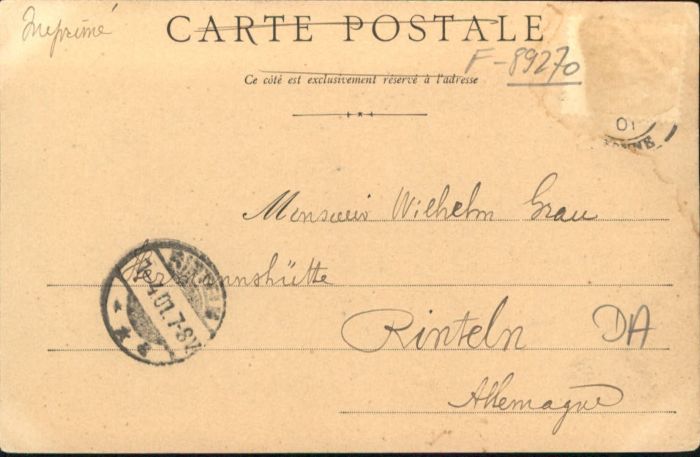 Imprimé
CARTE POSTALE
F-89270
Ce côté est exclusivement réservé à l'adresse
01
Monsieur Wilhelm Grau
Hermannshütte
Rinteln DA
Allemagne
RINTELN
4.01.7-8V.